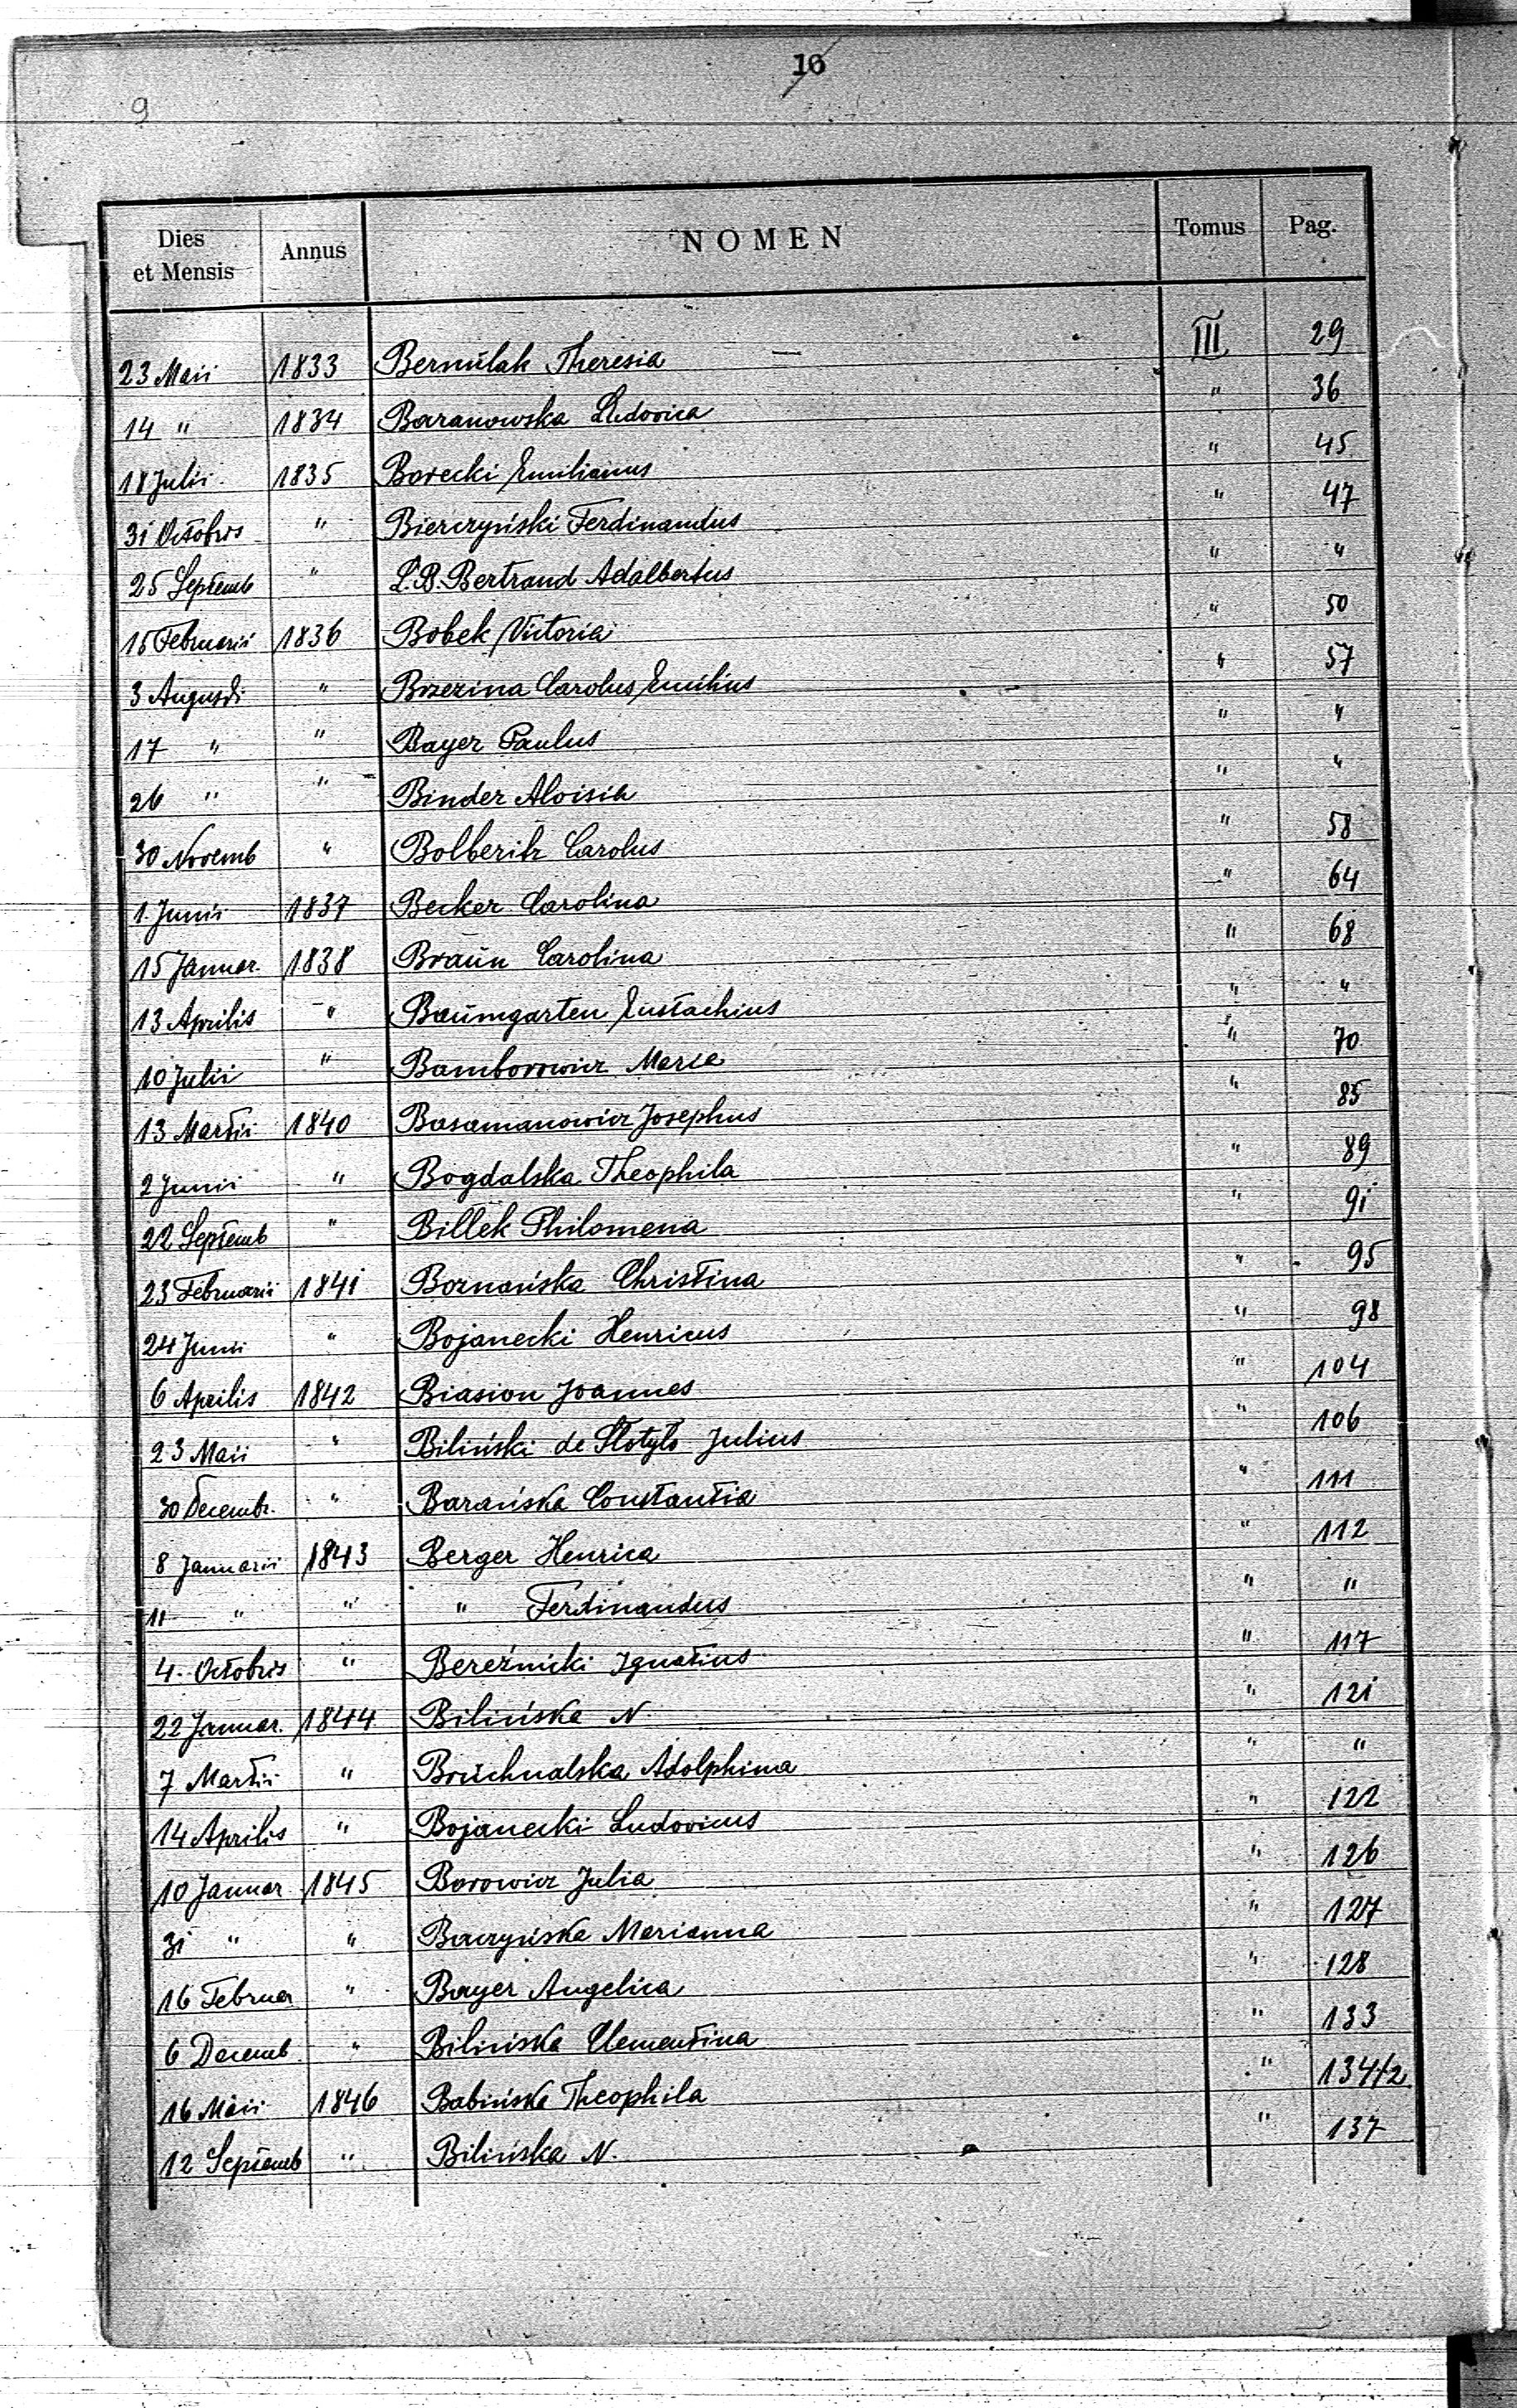 16
9
Dies et Mensis Annus NOMEN Tomus Pag.
23 Maii 1833 Bernülak Theresia — III 29
14 " 1834 Baranowska Ludovica " 36
18 Julii 1835 Borecki Emilianus " 45
31 Octobris " Bierczyński Ferdinandus " 47
25 Septemb " L. B. Bertrand Adalbertus " "
15 Februarii 1836 Bobek Victoria " 50
3 Augusti " Brzezina Carolus Emilius " 57
17 " " Bayer Paulus " "
26 " " Binder Aloisia " "
30 Novemb " Bolberitz Carolus " 58
1. Junii 1837 Becker Carolina " 64
15 Januar. 1838 Braün Carolina " 68
13 Aprilis " Baümgarten Eustachius " "
10 Julii " Bamborowicz Maria " 70
13 Martii 1840 Basamanowicz Josephus " 85
2 Junii " Bogdalska Theophila " 89
22 Septemb " Billek Philomena " 91
23 Februarii 1841 Boznańska Christina " 95
24 Junii " Bojanecki Henricus " 98
6 Aprilis 1842 Biasion Joannes " 104
23 Maii " Biliński de Słotyło Julius " 106
30 Decembr. " Barańska Constantia " 111
8 Januarii 1843 Berger Henrica " 112
11 " " " Ferdinandus " "
4. Octobris " Bereźnicki Ignatius " 117
22 Januar. 1844 Bilińska N. " 121
7 Martii " Brüchnalska Adolphina " "
14 Aprilis " Bojanecki Ludovicus " 122
10 Januar 1845 Borowicz Julia " 126
31 " " Baczyńska Marianna " 127
16 Februar " Bayer Angelica " 128
6 Decemb " Bilińska Clementina " 133
16 Maii 1846 Babińska Theophila " 134/2
12 Septemb " Bilińska N. " 137